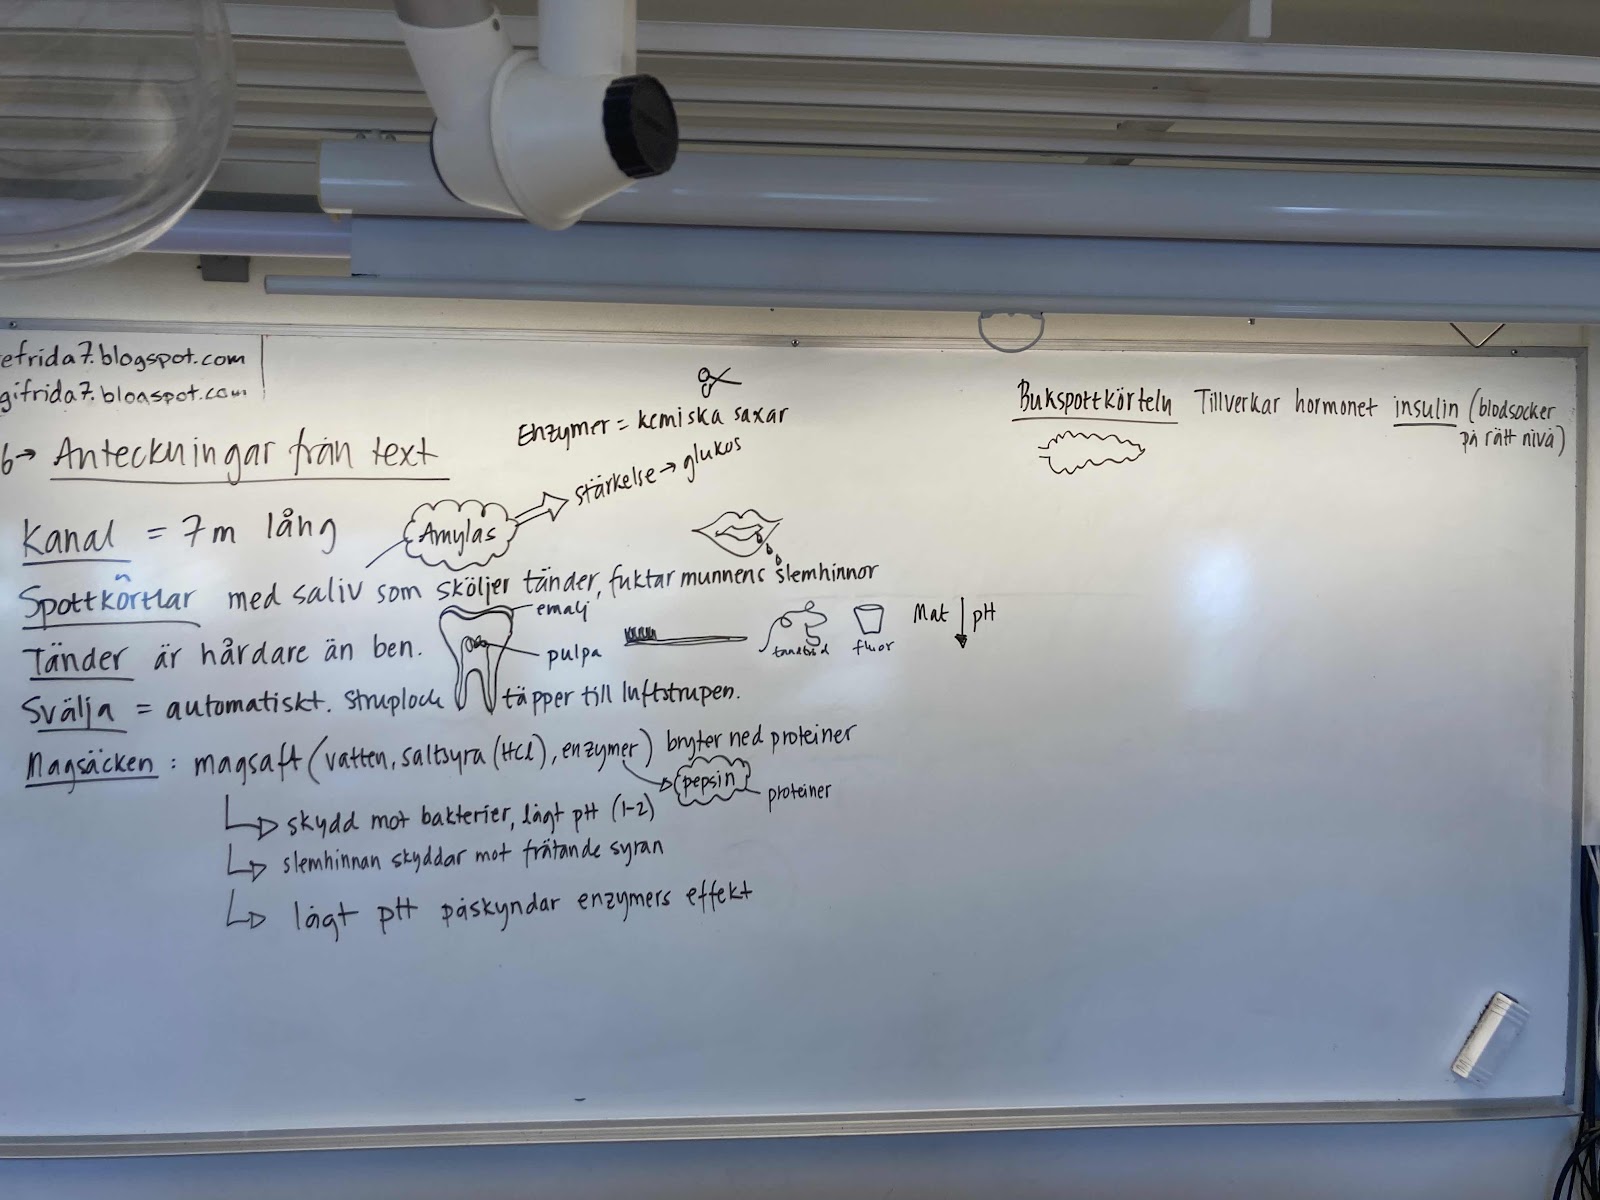 efrida7.blogspot.com
gifrida7.blogspot.com
6→ Anteckningar från text
Enzymer = kemiska saxar
Kanal = 7m lång
Amylas
stärkelse → glukos
Spottkörtlar med saliv som sköljer tänder, fuktar munnens slemhinnor
Tänder är hårdare än ben.
emalj
pulpa
tandtråd
fluor
Mat ↓ pH
Svälja = automatiskt. Struplock täpper till luftstrupen.
Magsäcken : magsaft (vatten, saltsyra (HCl), enzymer) bryter ned proteiner
pepsin
proteiner
skydd mot bakterier, lågt pH (1-2)
slemhinnan skyddar mot frätande syran
lågt pH påskyndar enzymers effekt
Bukspottkörteln Tillverkar hormonet insulin (blodsocker
på rätt nivå)